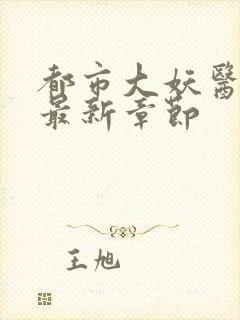 都市大妖醫
最新章節
王旭